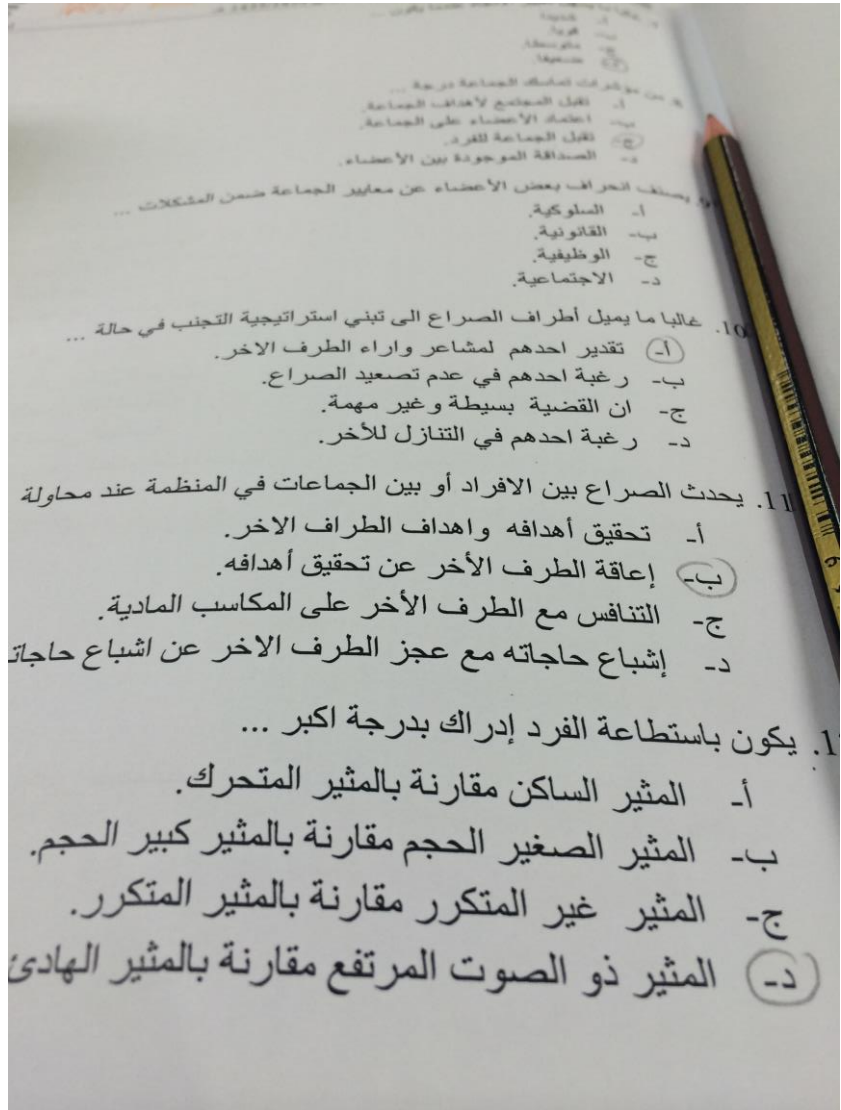 أ- شديدا
ب- قويا.
ج- متوسطا.
د- ضعيفا.
8. من مؤشرات تماسك الجماعة درجة ...
أ- تقبل المجتمع لأهداف الجماعة.
ب- اعتماد الأعضاء على الجماعة.
ج- تقبل الجماعة للفرد.
د- الصداقة الموجودة بين الأعضاء.
9. يصنف انحراف بعض الأعضاء عن معايير الجماعة ضمن المشكلات ...
أ- السلوكية.
ب- القانونية.
ج- الوظيفية.
د- الاجتماعية.
10. غالبا ما يميل أطراف الصراع الى تبني استراتيجية التجنب في حالة ...
أ- تقدير احدهم لمشاعر واراء الطرف الاخر.
ب- رغبة احدهم في عدم تصعيد الصراع.
ج- ان القضية بسيطة وغير مهمة.
د- رغبة احدهم في التنازل للأخر.
11. يحدث الصراع بين الافراد أو بين الجماعات في المنظمة عند محاولة
أ- تحقيق أهدافه واهداف الطراف الاخر.
ب- إعاقة الطرف الأخر عن تحقيق أهدافه.
ج- التنافس مع الطرف الأخر على المكاسب المادية.
د- إشباع حاجاته مع عجز الطرف الاخر عن اشباع حاجات
1. يكون باستطاعة الفرد إدراك بدرجة اكبر ...
أ- المثير الساكن مقارنة بالمثير المتحرك.
ب- المثير الصغير الحجم مقارنة بالمثير كبير الحجم.
ج- المثير غير المتكرر مقارنة بالمثير المتكرر.
د- المثير ذو الصوت المرتفع مقارنة بالمثير الهادئ